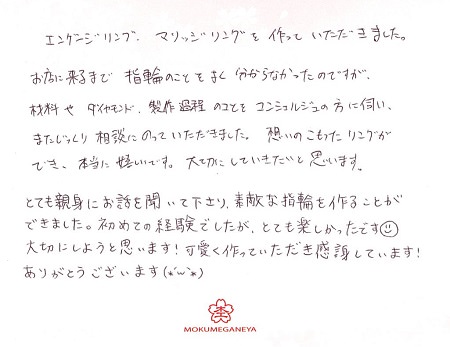 エンゲージリング、マリッジリングを作っていただきました。
お店に来るまで指輪のことをよく分からなかったのですが、
材料やダイヤモンド、製作過程のことをコンシェルジュの方に伺い、
またじっくり相談にのっていただきました。想いのこもったリングが
でき、本当に嬉しいです。大切にしていきたいと思います。
とても親身にお話を聞いて下さり、素敵な指輪を作ることが
できました。初めての経験でしたが、とても楽しかったです☺
大切にしようと思います!可愛く作っていただき感謝しています!
ありがとうございます(*´w`*)
杢
MOKUMEGANEYA